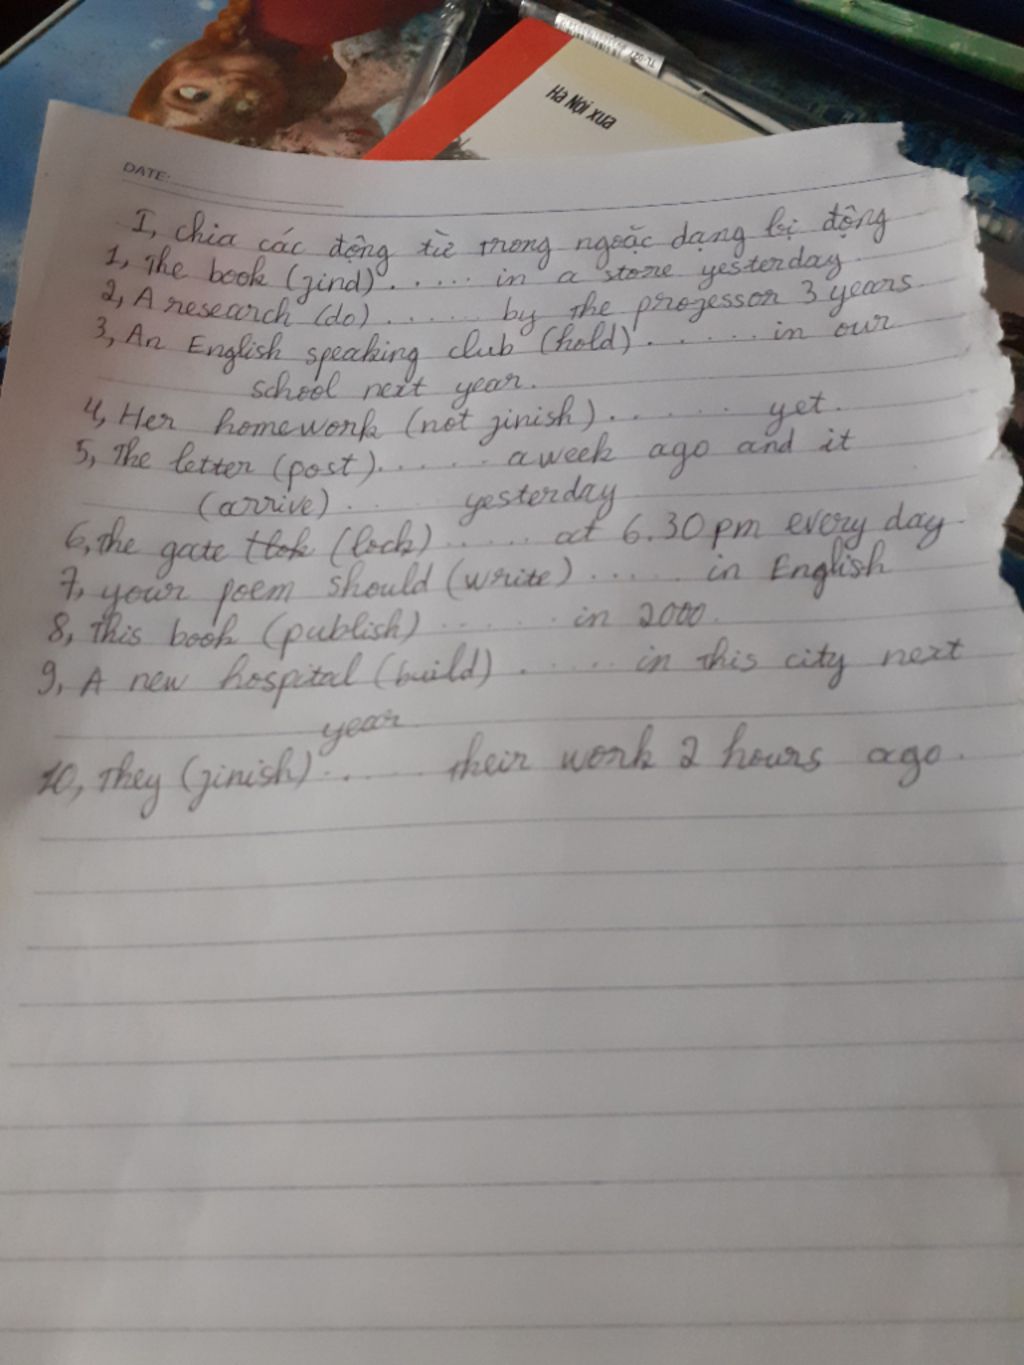 Hà Nội xưa
DATE:
I, chia các động từ trong ngoặc dạng bị động
1, The book (find) ..... in a store yesterday.
2, A research (do) ...... by the professor 3 years.
3, An English speaking club (hold) ...... in our
school next year.
4, Her homework (not finish) ....... yet.
5, The letter (post) ...... a week ago and it
(arrive) .. yesterday
6, the gate (lock) ..... at 6.30 pm every day.
7, your poem should (write) ..... in English
8, This book (publish) ...... in 2000.
9, A new hospital (build) ...... in this city next
year.
10, They (finish) ..... their work 2 hours ago.